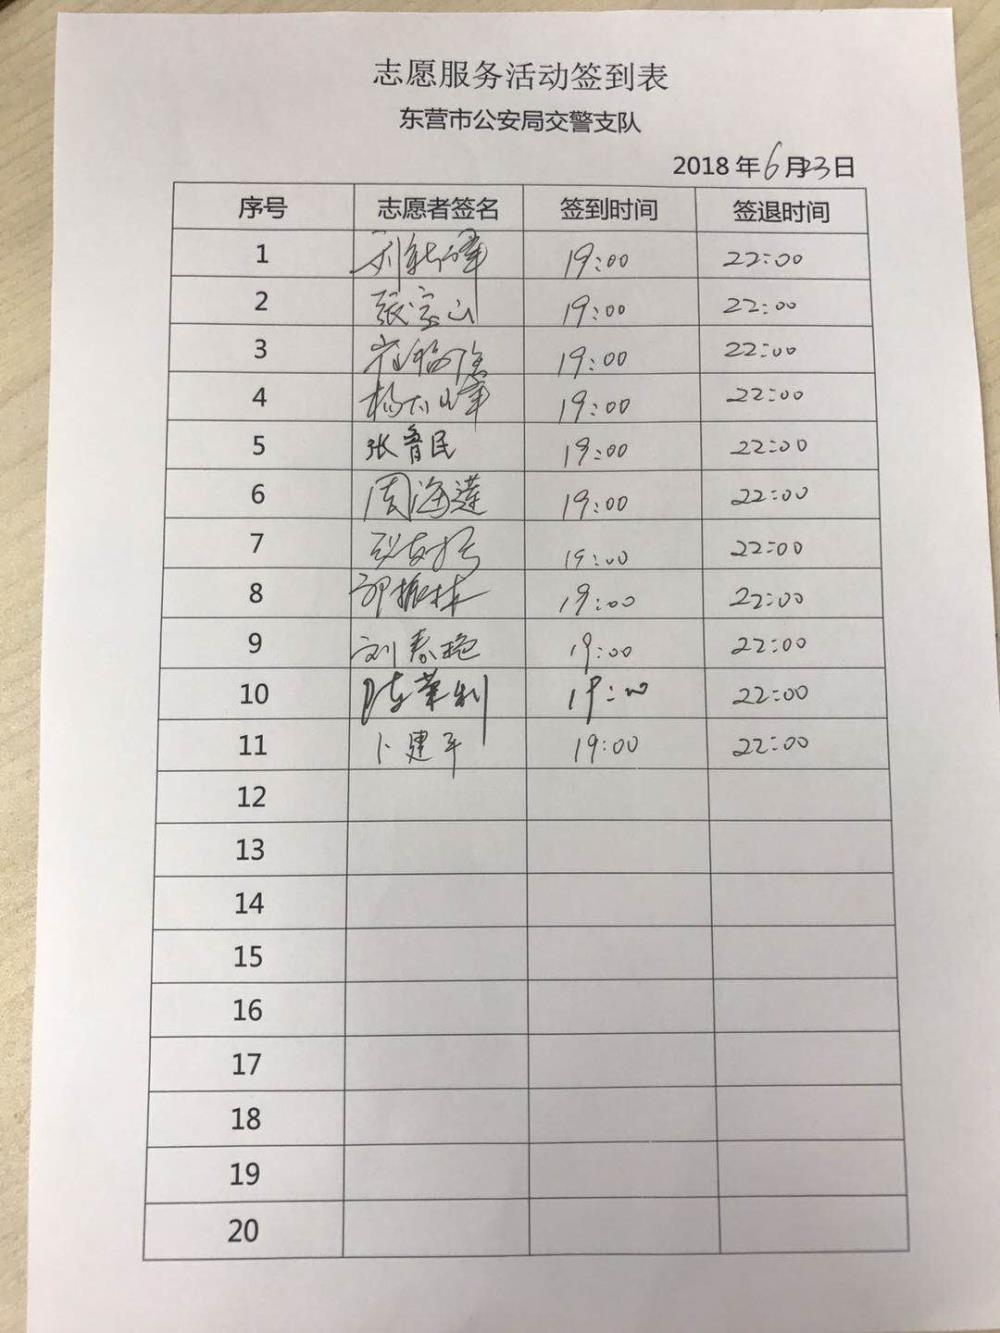 志愿服务活动签到表
东营市公安局交警支队
2018 年 6 月 23 日
序号 志愿者签名 签到时间 签退时间
1 19:00 22:00
2 张宗山 19:00 22:00
3 19:00 22:00
4 19:00 22:00
5 张鲁民 19:00 22:00
6 周海莲 19:00 22:00
7 19:00 22:00
8 郭振林 19:00 22:00
9 刘春艳 19:00 22:00
10 陈荣利 19:00 22:00
11 卜建平 19:00 22:00
12
13
14
15
16
17
18
19
20